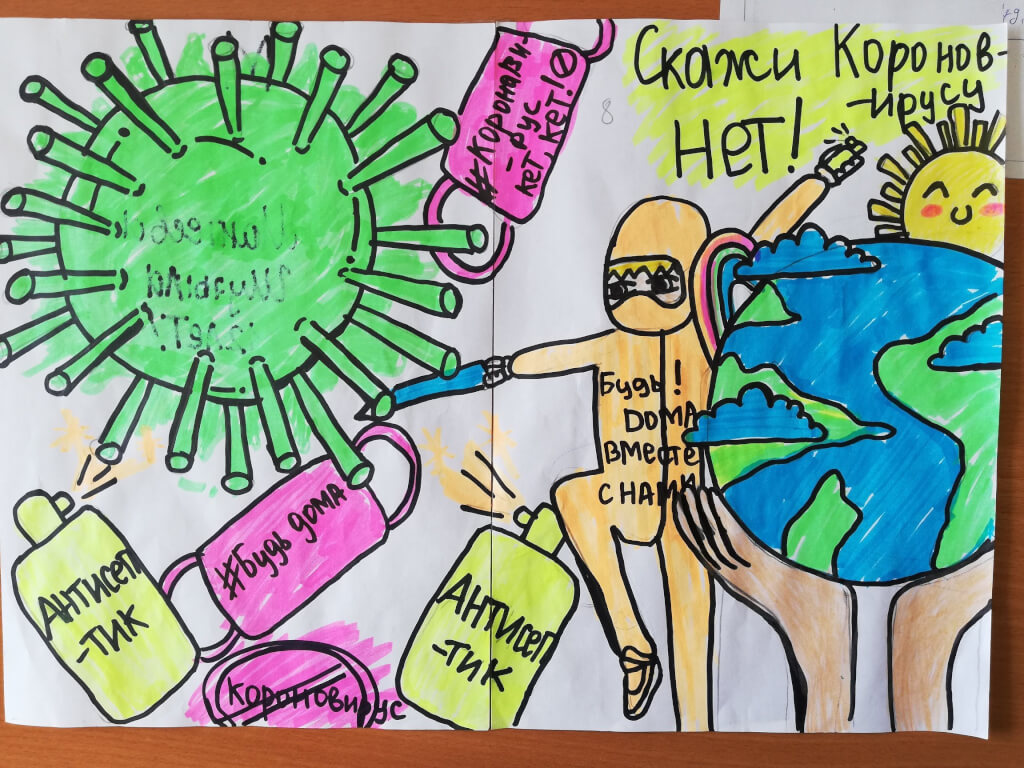 Скажи Коронов-
-ирусу
НЕТ!
#Коронави-
-рус
кет, кет!
8
Будь!
Дома
вместе
с нами
#Будь дома
Антисеп
-тик
Антисеп
-тик
Короновирус